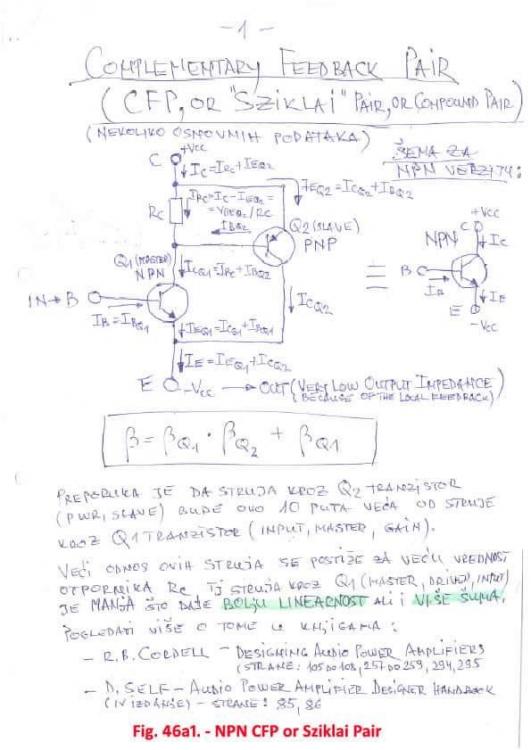 -1-
COMPLEMENTARY FEEDBACK PAIR
(CFP, OR "SZIKLAI" PAIR, OR COMPOUND PAIR)
(NEKOLIKO OSNOVNIH PODATAKA)
ŠEMA ZA
NPN VERZIJU:
+Vcc
C
Ic=IRc+IEQ2
IRc=Ic-IEQ2=
=VBEQ2/Rc
IBQ2
Rc
IEQ2=ICQ2+IBQ2
Q2 (SLAVE)
PNP
Q1 (MASTER)
NPN
ICQ1=IRc+IBQ2
ICQ2
IN→B
IB=IBQ1
IEQ1=ICQ1+IBQ1
IE=IEQ1+ICQ2
E -Vcc → OUT (VERY LOW OUTPUT IMPEDANCE)
(BECAUSE OF THE LOCAL FEEDBACK)
=
+Vcc
C
NPN
Ic
B
IB
IE
E
-Vcc
β = βQ1 · βQ2 + βQ1
PREPORUKA JE DA STRUJA KROZ Q2 TRANZISTOR
(PWR, SLAVE) BUDE OKO 10 PUTA VEĆA OD STRUJE
KROZ Q1 TRANZISTOR (INPUT, MASTER, GAIN).
VEĆI ODNOS OVIH STRUJA SE POSTIŽE ZA VEĆU VREDNOST
OTPORNIKA Rc TJ STRUJA KROZ Q1 (MASTER, DRIVER, INPUT)
JE MANJA ŠTO DAJE BOLJU LINEARNOST ALI I VIŠE ŠUMA.
POGLEDATI VIŠE O TOME U KNJIGAMA:
- R.B. CORDELL - DESIGNING AUDIO POWER AMPLIFIERS
(STRANE: 105 DO 108, 257 DO 259, 294, 295
- D. SELF - AUDIO POWER AMPLIFIER DESIGNER HANDBOOK
(IV IZDANJE) - STRANE: 85, 86
Fig. 46a1. - NPN CFP or Sziklai Pair